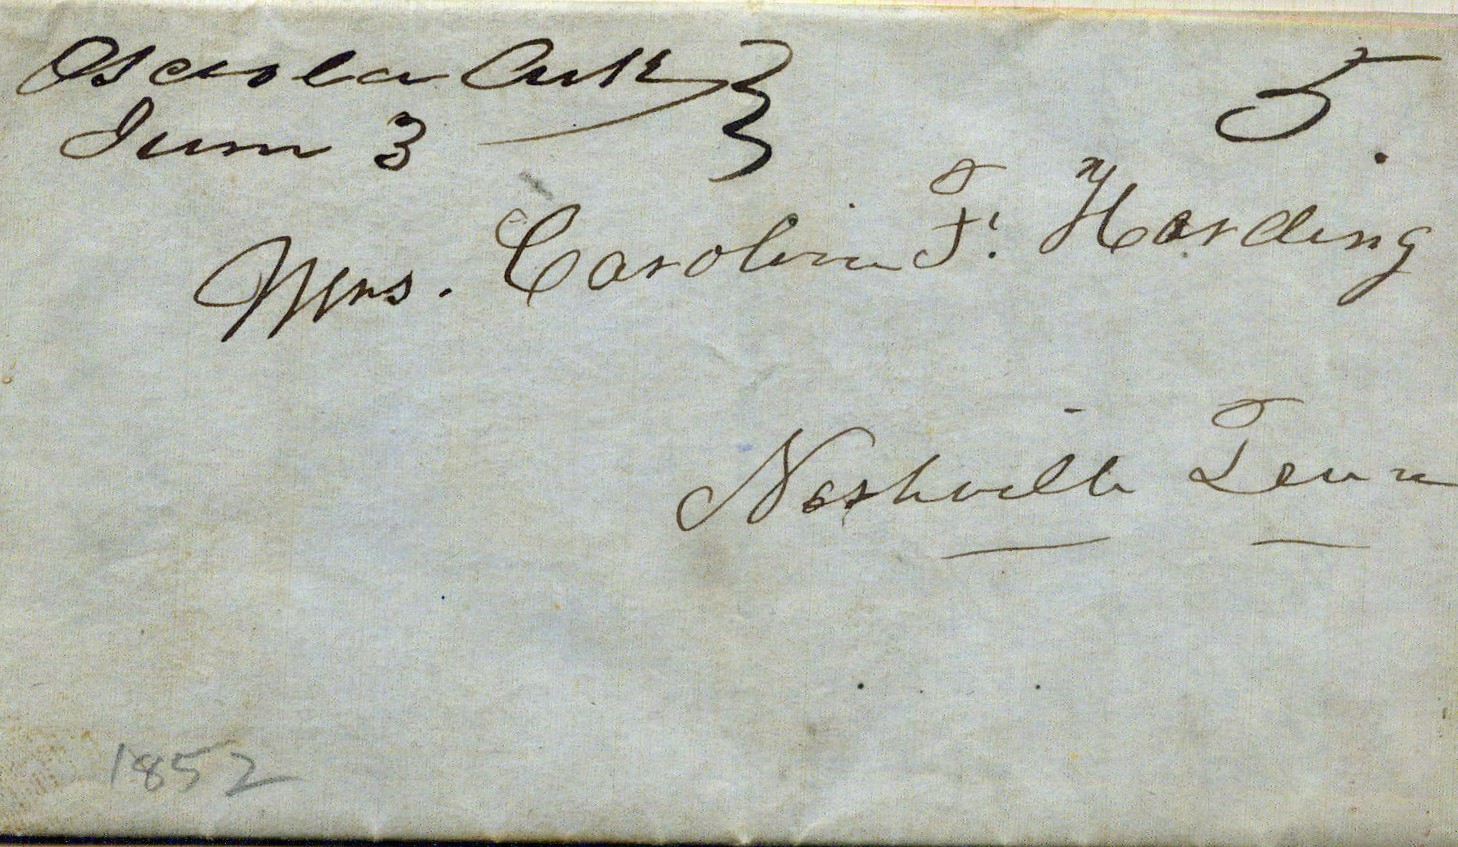 Osceola Ark
June 3
5.
Mrs. Caroline F. Harding
Nashville Tenn
1852